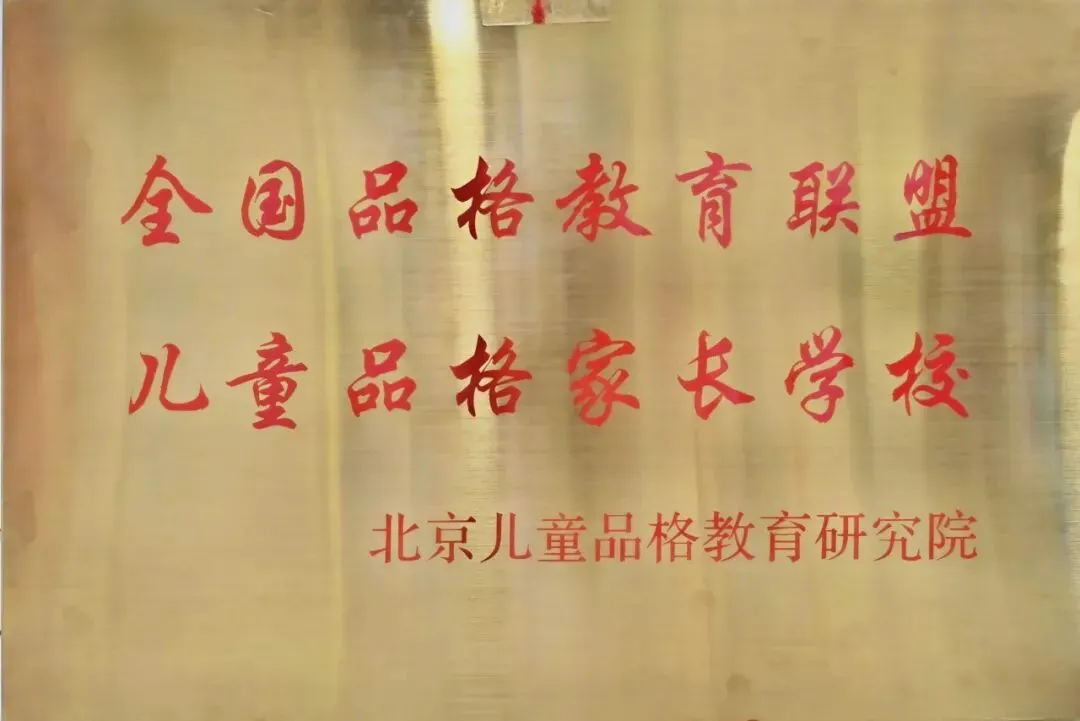 全国品格教育联盟
儿童品格家长学校
北京儿童品格教育研究院